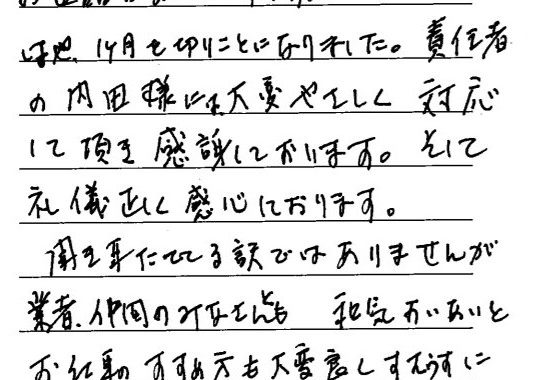 14月を切りことになりました。責任者
の内田様には大変やさしく対応
して頂き感謝しております。そして
礼儀正しく感心しております。
聞き耳たてる訳ではありませんが
業者、仲間のみなさんとも 和気あいあいと
お仕事のすすめ方も大変良し